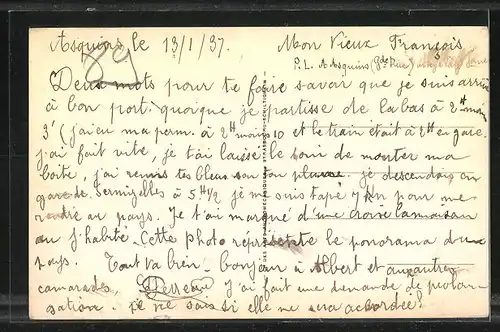 Asquins le 13/1/37. Mon Vieux François
89
P.L. à Asquins (Gde Rue)
Deux mots pour te faire savoir que je suis arrivé
à bon port. quoique je partisse de labas à 2H moins
3' (j'ai eu ma perm. à 2H moins 10 et le train était à 2H en gare.
j'ai fait vite, je t'ai laissé le soin de monter ma
boîte, j'ai remis tes bleus je descendais en
gare de Sermizelles à 5H1/2 je me suis tapé 7 Km pour me
rendre au pays. Je t'ai marqué d'une croix la maison
ou j'habite. Cette photo représente le panorama du
pays. Tout va bien. bonjour à Albert et aux autres
camarades, j'ai fait une demande de prolon-
gation. je ne sais si elle me sera accordée?